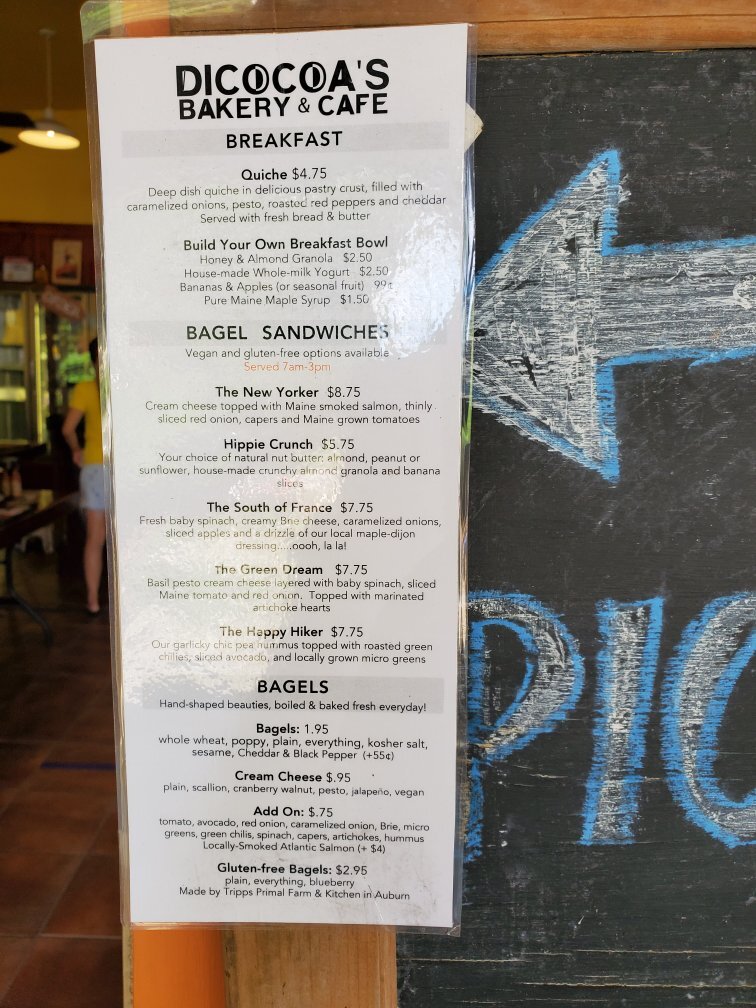 DICOCOA'S
BAKERY & CAFE
BREAKFAST
Quiche $4.75
Deep dish quiche in delicious pastry crust, filled with
caramelized onions, pesto, roasted red peppers and cheddar
Served with fresh bread & butter
Build Your Own Breakfast Bowl
Honey & Almond Granola $2.50
House-made Whole-milk Yogurt $2.50
Bananas & Apples (or seasonal fruit) 99¢
Pure Maine Maple Syrup $1.50
BAGEL SANDWICHES
Vegan and gluten-free options available
Served 7am-3pm
The New Yorker $8.75
Cream cheese topped with Maine smoked salmon, thinly
sliced red onion, capers and Maine grown tomatoes
Hippie Crunch $5.75
Your choice of natural nut butter: almond, peanut or
sunflower, house-made crunchy almond granola and banana
slices
The South of France $7.75
Fresh baby spinach, creamy Brie cheese, caramelized onions,
sliced apples and a drizzle of our local maple-dijon
dressing.....oooh, la la!
The Green Dream $7.75
Basil pesto cream cheese layered with baby spinach, sliced
Maine tomato and red onion. Topped with marinated
artichoke hearts
The Happy Hiker $7.75
Our garlicky chic pea hummus topped with roasted green
chilies, sliced avocado, and locally grown micro greens
BAGELS
Hand-shaped beauties, boiled & baked fresh everyday!
Bagels: 1.95
whole wheat, poppy, plain, everything, kosher salt,
sesame, Cheddar & Black Pepper (+55¢)
Cream Cheese $.95
plain, scallion, cranberry walnut, pesto, jalapeño, vegan
Add On: $.75
tomato, avocado, red onion, caramelized onion, Brie, micro
greens, green chilis, spinach, capers, artichokes, hummus
Locally-Smoked Atlantic Salmon (+ $4)
Gluten-free Bagels: $2.95
plain, everything, blueberry
Made by Tripps Primal Farm & Kitchen in Auburn
PIC